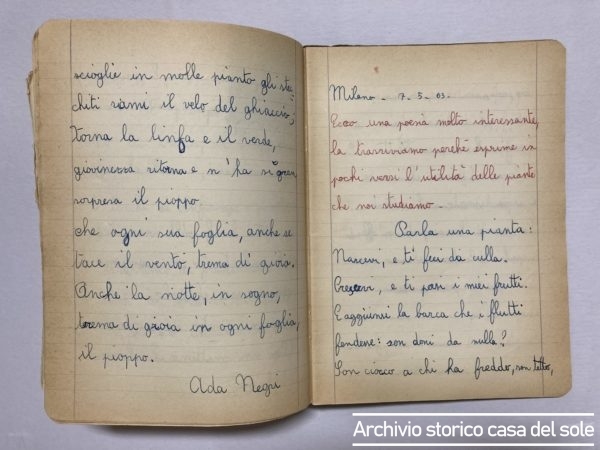 scioglie in molle pianto gli stec=
chiti rami il velo del ghiaccio;
torna la linfa e il verde,
giovinezza ritorna e n'ha sì gran
sorpresa il pioppo
che ogni sua foglia, anche se
tace il vento, trema di gioia.
Anche la notte, in sogno,
trema di gioia in ogni foglia,
il pioppo.
Ada Negri
Milano - 7-5-63.
Ecco una poesia molto interessante,
la trascriviamo perchè esprime in
pochi versi l'utilità delle piante
che noi studiamo -
Parla una pianta:
Nascevi, e ti feci da culla.
Crescevi, e ti porsi i miei frutti.
E aggiunsi la barca che i flutti
fendeve: son doni da nulla?
Son ciocco a chi ha freddo, son tetto,
Archivio storico casa del sole